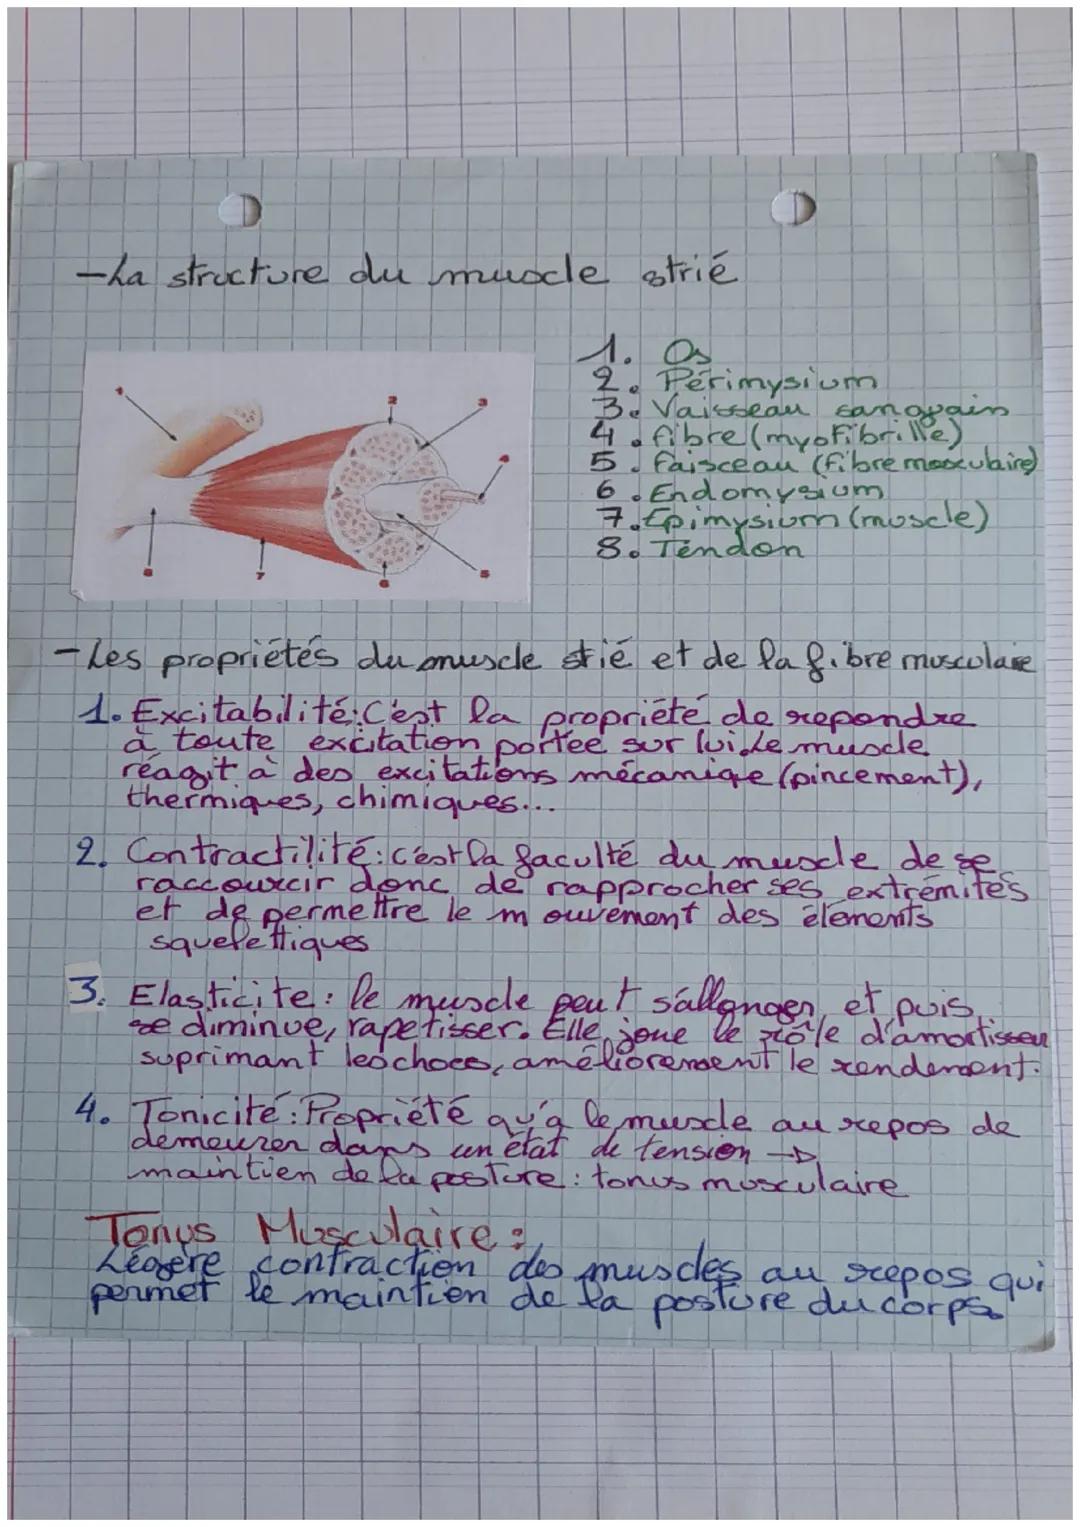 -La structure du muscle strié
1. Os
2. Périmysium
3. Vaisseau sanguain
4. fibre (myofibrille)
5. Faisceau (fibre mosculaire)
6. Endomysium
7. Epimysium (muscle)
8. Tendon
1
2
3
4
8
7
6
5
-Les propriétés du muscle strié et de la fibre musculaire
1. Excitabilité: C'est la propriété de repondre
à toute excitation portée sur lui. Le muscle
réagit à des excitations mécanique (pincement),
thermiques, chimiques...
2. Contractilité: c'est la faculté du muscle de se
raccourcir donc de rapprocher ses extrémités
et de permettre le mouvement des élements
squelettiques
3. Elasticite: le muscle peut s'allonger, et puis
se diminue, rapetisser. Elle joue le rôle d'amortisseur
suprimant les chocs, améliorement le rendement.
4. Tonicité: Propriété qu'a le muscle au repos de
demeurer dans un état de tension →
maintien de la posture: tonus musculaire
Tonus Musculaire:
Légère contraction des muscles au repos qui
permet le maintien de la posture du corps.